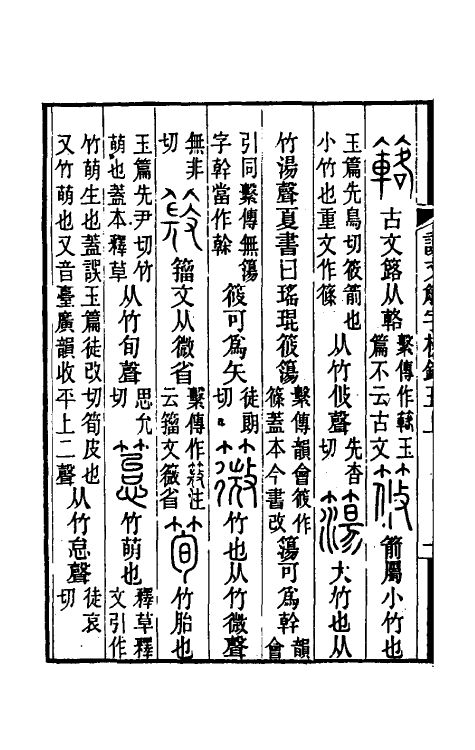 說文解字校錄五上
古文簬从輅繫傳作簵玉篇不云古文筱箭屬小竹也
玉篇先鳥切筱箭也小竹也重文作篠从竹攸聲先杳切簜大竹也从
竹湯聲夏書曰瑤琨筱簜繫傳韻會筱作篠蓋本今書改簜可為幹韻會
引同繫傳無簜字幹當作榦筱可為矢徒朗切薇竹也从竹微聲
無非切籀文从微省繫傳作注云籀文薇省筍竹胎也
玉篇先尹切竹萌也蓋本釋草从竹旬聲思允切䈚竹萌也釋草釋文引作
竹萌生也蓋誤玉篇徒改切筍皮也又竹萌也又音臺廣韻收平上二聲从竹怠聲徒哀切